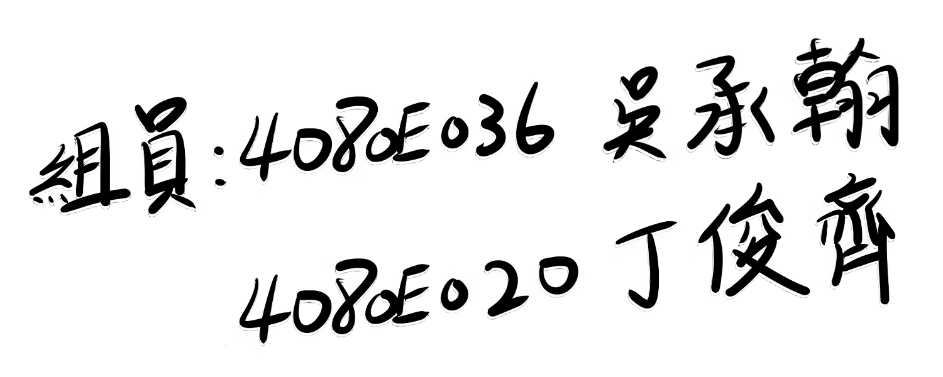 組員:4080E036 吳承翰
4080E020 丁俊齊